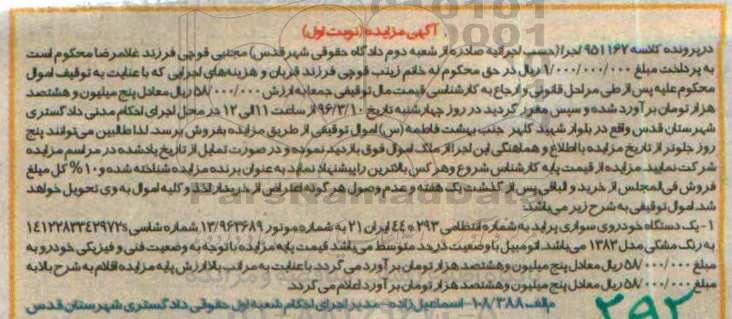 آگهی مزایده (نوبت اول)
در پرونده کلاسه ۹۵۱۱۶۷ اجرا (حسب اجرائیه صادره از شعبه دوم دادگاه حقوقی شهرقدس) مجتبی قوچی فرزند غلامرضا محکوم است
به پرداخت مبلغ ۱/۰۰۰/۰۰۰/۰۰۰ ریال در حق محکوم له خانم زینب قوچی فرزند قربان و هزینه‌های اجرایی که با عنایت به توقیف اموال
محکوم علیه پس از طی مراحل قانونی و ارجاع به کارشناسی قیمت مال توقیفی جمعا به ارزش ۵۸/۰۰۰/۰۰۰ ریال معادل پنج میلیون و هشتصد
هزار تومان برآورد شده و سپس مقرر گردید در روز چهارشنبه تاریخ ۹۶/۳/۱۰ از ساعت ۱۱ الی ۱۲ در محل اجرای احکام مدنی دادگستری
شهرستان قدس واقع در بلوار شهید کلهر جنب بهشت فاطمه (س) اموال توقیفی از طریق مزایده بفروش برسد. لذا طالبین می‌توانند پنج
روز جلوتر از تاریخ مزایده با اطلاع و هماهنگی این اجرا از ملک اموال فوق بازدید نموده و در صورت تمایل از تاریخ یادشده در مراسم مزایده
شرکت نمایند. مزایده از قیمت پایه کارشناس شروع و هر کس بالاترین را پیشنهاد نماید به عنوان برنده مزایده شناخته شده و ۱۰% کل مبلغ
فروش فی المجلس از خرید و الباقی پس از گذشت یک هفته و عدم وصول هر گونه اعتراض از خریدار اخذ و کلیه اموال به وی تحویل خواهد
شد. اموال توقیفی به شرح زیر می‌باشد:
۱- یک دستگاه خودروی سواری پراید به شماره انتظامی ۲۹۳ ه ۴۴ ایران ۲۱ به شماره موتور ۱۳/۹۶۳۶۸۹ شماره شاسی s۱۴۱۲۲۸۳۳۴۲۹۷۲
به رنگ مشکی مدل ۱۳۸۳ می‌باشد. اتومبیل با وضعیت در حد متوسط می‌باشد قیمت پایه مزایده با توجه به وضعیت فنی و فیزیکی خودرو به
مبلغ ۵۸/۰۰۰/۰۰۰ ریال معادل پنج میلیون و هشتصد هزار تومان برآورد می گردد. با عنایت به مراتب بالا ارزش پایه مزایده اقلام به شرح بالا به
مبلغ ۵۸/۰۰۰/۰۰۰ ریال معادل پنج میلیون و هشتصد هزار تومان برآورد اعلام می گردد.
م الف ۱۰۸/۳۸۸ - اسماعیل زاده - مدیر اجرای احکام شعبه اول حقوقی دادگستری شهرستان قدس
۲۹۲